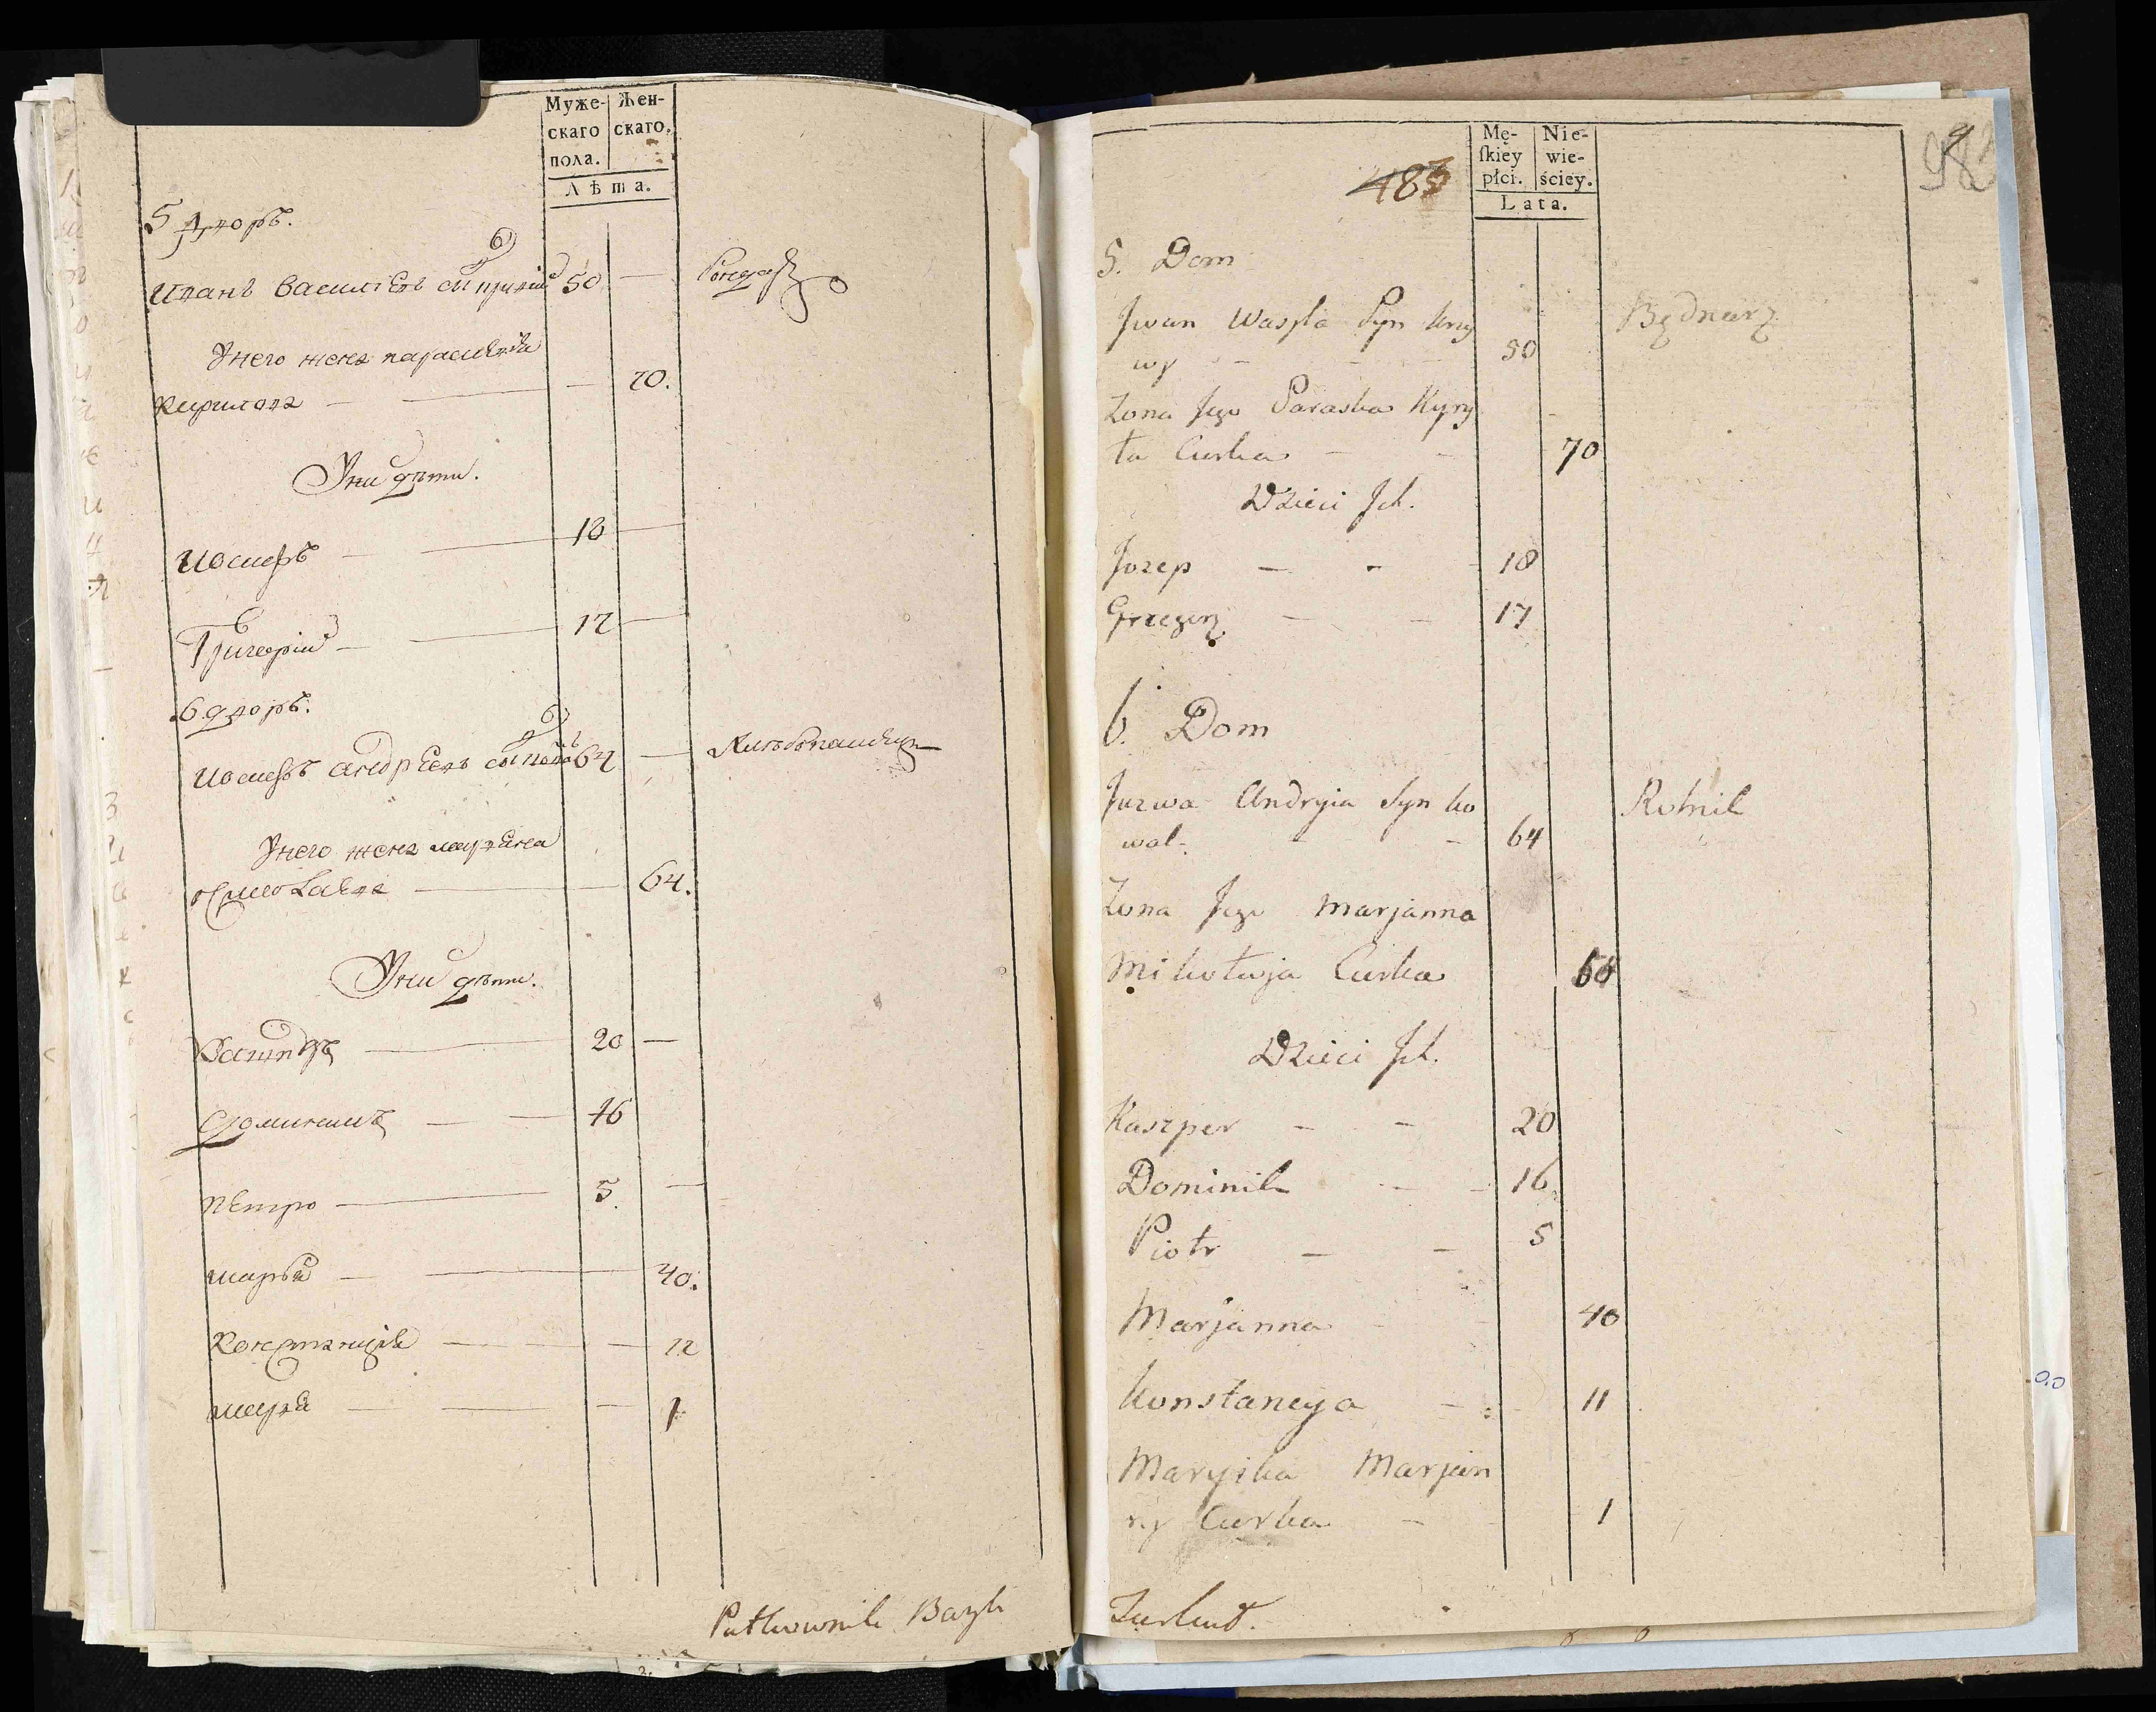 Муже-
скаго
пола.
Жен-
скаго.
Лѣта.
5 дворъ.
Иванъ Васильевъ сынъ 50 —
У него жена Параскевia
Кирилова — — — 70.
У ни дѣти.
Иосифъ — — 18 —
Григорiи — — 17 —
6 дворъ.
Иосифъ Андреевъ сынъ 64 —
У него жена
— — 64.
У ни дѣти.
20 —
— — 16
Петро — 5. —
Марья — — 40.
Констанция — — — 11
— — — 1
Pułkownik Bazyli
483
98
Mę-
ſkiey
płci.
Nie-
wie-
ściey.
Lata.
5. Dom
Jwan Wasyla Syn Kry
wy - 50
Będnarz
Zona Jego Paraska Kyry
ła Curka - - 70
Dzieci Jch.
Jozep — - 18
Grzegorz — - 17
6. Dom
Jozwa Andryia Syn Ko
wal - - 64
Rolnik
Zona Jego Marjanna
Mikołaja Curka
Dzieci Jch.
Kaszper - - 20
Dominik - - 16
Piotr — - 5
Marjanna 40
Konstancya - 11
Maryska Marjan
ny Curka - 1